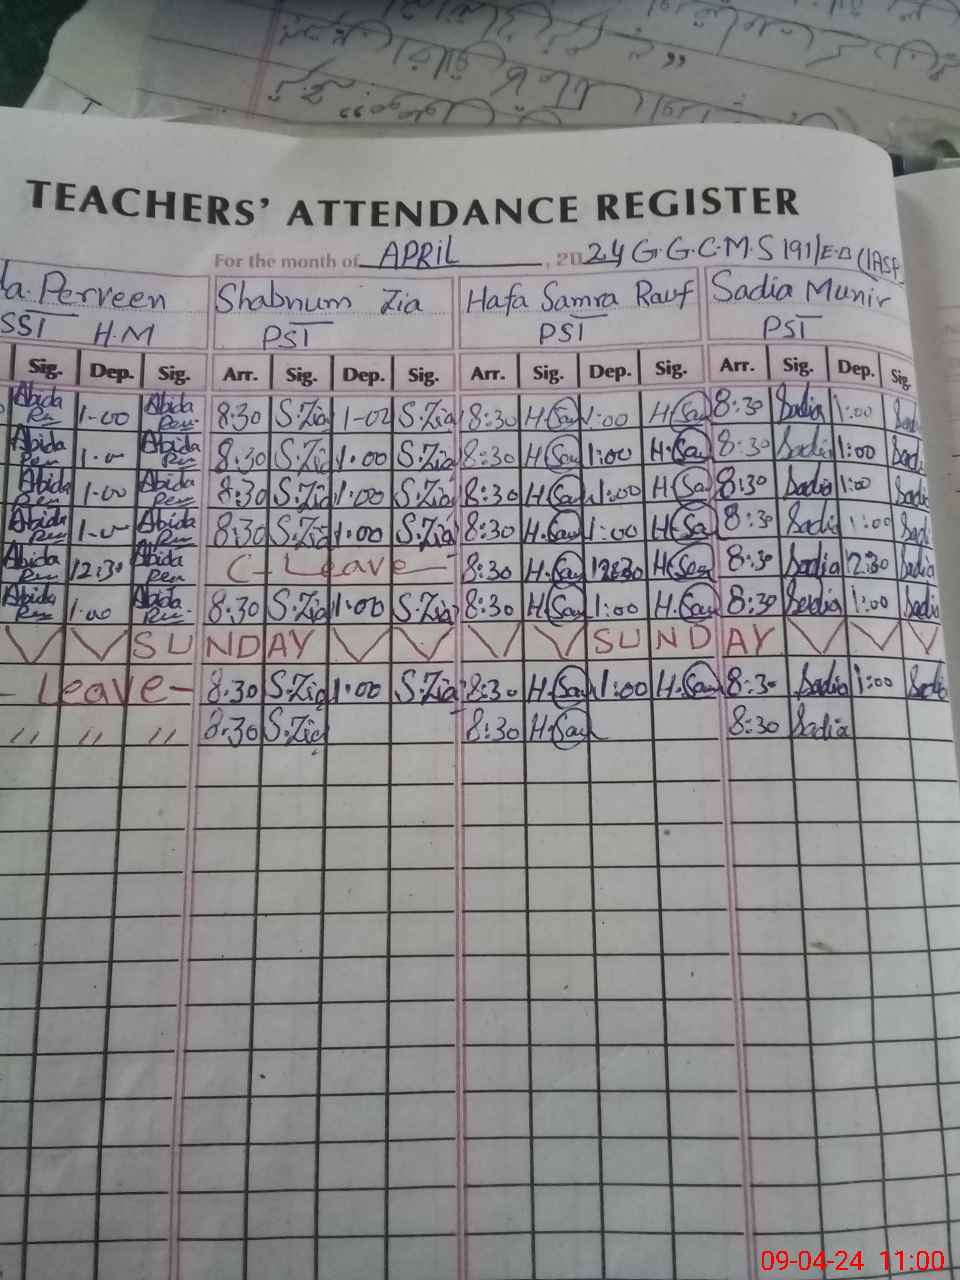 TEACHERS' ATTENDANCE REGISTER
For the month of APRIL, 2024 G.G.C.M.S 191/E.B (IASP
da Perveen Shabnum Zia Hafa Samra Rauf Sadia Munir
SST H.M PST PST PST
Sig. Dep. Sig. Arr. Sig. Dep. Sig. Arr. Sig. Dep. Sig. Arr. Sig. Dep. Sig.
Abida Per 1-00 Abida Per 8:30 S.Zia 1-02 S.Zia 8:30 H.Sam 1:00 H.Sam 8:30 Sadia 1:00 Sadi
Abida Per 1-0 Abida Per 8:30 S.Zia 1:00 S.Zia 8:30 H.Sam 1:00 H.Sam 8:30 Sadia 1:00 Sadi
Abida Per 1-00 Abida Per 8:30 S.Zia 1:00 S.Zia 8:30 H.Sam 1:00 H.Sam 8:30 Sadia 1:00 Sadi
Abida Per 1-0 Abida Per 8:30 S.Zia 1:00 S.Zia 8:30 H.Sam 1:00 H.Sam 8:30 Sadia 1:00 Sadi
Abida Per 12:30 Abida Per C-Leave- 8:30 H.Sam 12:30 H.Sam 8:30 Sadia 12:30 Sadia
Abida Per 1:00 Abida Per 8:30 S.Zia 1:00 S.Zia 8:30 H.Sam 1:00 H.Sam 8:30 Sadia 1:00 Sadia
SUNDAY SUNDAY
- Leave - 8:30 S.Zia 1:00 S.Zia 8:30 H.Sam 1:00 H.Sam 8:30 Sadia 1:00 Sadia
" " " 8:30 S.Zia 8:30 H.Sam 8:30 Sadia
09-04-24 11:00